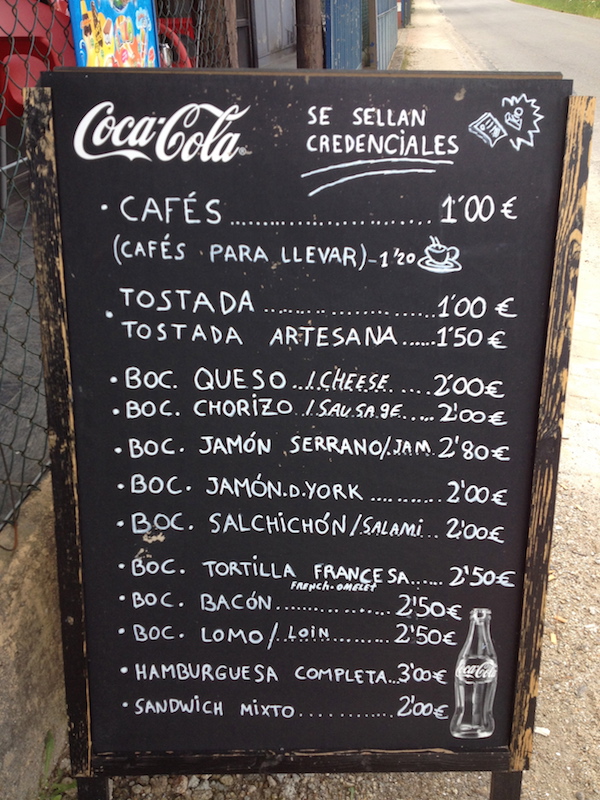 Coca-Cola
SE SELLAN
CREDENCIALES
• CAFÉS.................. 1'00 €
(CAFÉS PARA LLEVAR)-1'20
TOSTADA ................... 1'00 €
• TOSTADA ARTESANA......1'50€
• BOC. QUESO../CHEESE.....2'00€
• BOC. CHORIZO/SAUSAGE.....2'00€
• BOC. JAMÓN SERRANO/JAM 2'80€
• BOC. JAMÓN.D.YORK .......... 2'00€
• BOC. SALCHICHÓN/SALAMI.. 2'00€
• BOC. TORTILLA FRANCESA...... 2'50€
FRENCH-OMELET
• BOC. BACÓN............... 2'50€
• BOC. LOMO/LOIN.......... 2'50€
• HAMBURGUESA COMPLETA..3'00€
• SANDWICH MIXTO ........... 2'00€
Coca-Cola